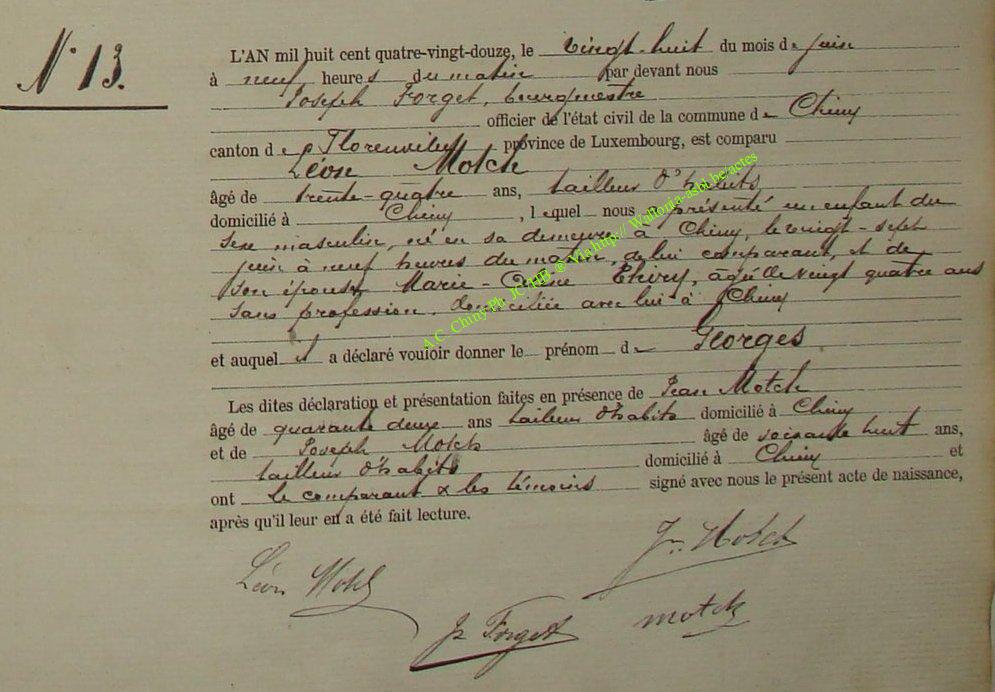 N° 13.
L'AN mil huit cent quatre-vingt-douze, le vingt-huit du mois de juin
à neuf heures du matin par devant nous
Joseph Forget, bourgmestre
officier de l'état civil de la commune de Chiny
canton de Florenville province de Luxembourg, est comparu
Léon Motch
âgé de trente-quatre ans, tailleur d'habits,
domicilié à Chiny, lequel nous a présenté un enfant du
sexe masculin, né en sa demeure à Chiny, le vingt-sept
juin à neuf heures du matin, de lui comparant, et de
son épouse Marie- Thiry, âgée de vingt quatre ans
sans profession, domiciliée avec lui à Chiny
et auquel il a déclaré vouloir donner le prénom de Georges
Les dites déclaration et présentation faites en présence de Jean Motch
âgé de quarante deux ans tailleur d'habits domicilié à Chiny
et de Joseph Motch âgé de soixante huit ans,
tailleur d'habits domicilié à Chiny et
ont le comparant & les témoins signé avec nous le présent acte de naissance,
après qu'il leur en a été fait lecture.
Jn. Motch
Léon Motch
Js Forget motch
A.C. Chiny Ph. JC HB ® Via http:// Wallonia-asbl.be/actes